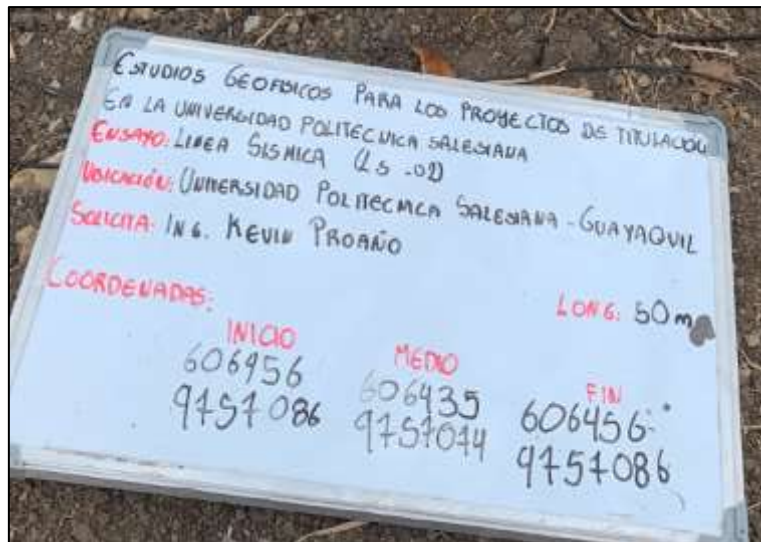 ESTUDIOS GEOFISICOS PARA LOS PROYECTOS DE TITULACION
EN LA UNIVERSIDAD POLITECNICA SALESIANA
ENSAYO: LINEA SISMICA (LS-02)
UBICACIÓN: UNIVERSIDAD POLITECNICA SALESIANA - GUAYAQUIL
SOLICITA: ING. KEVIN PROAÑO
COORDENADAS:
LONG: 50m
INICIO MEDIO FIN
606456 606435 606456
9757086 9757074 9757086